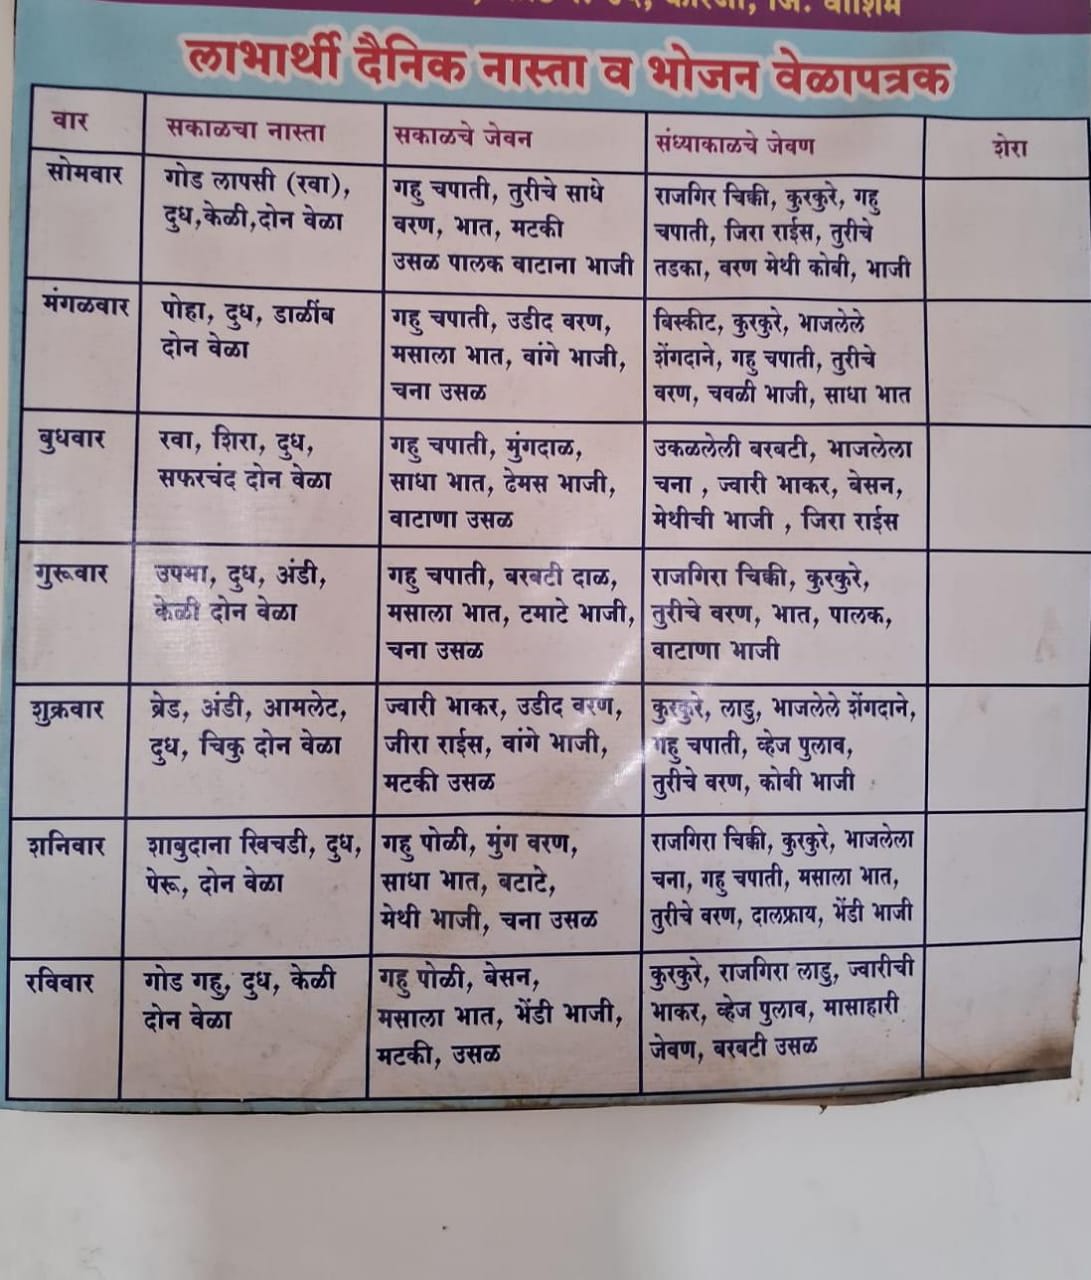 कारंजा, जि. वाशिम
लाभार्थी दैनिक नास्ता व भोजन वेळापत्रक
वार सकाळचा नास्ता सकाळचे जेवन संध्याकाळचे जेवण शेरा
सोमवार
गोड लापसी (रवा),
दुध,केळी,दोन वेळा
गहु चपाती, तुरीचे साधे
वरण, भात, मटकी
उसळ पालक वाटाना भाजी
राजगिर चिक्की, कुरकुरे, गहु
चपाती, जिरा राईस, तुरीचे
तडका, वरण मेथी कोबी, भाजी
मंगळवार
पोहा, दुध, डाळींब
दोन वेळा
गहु चपाती, उडीद वरण,
मसाला भात, वांगे भाजी,
चना उसळ
बिस्कीट, कुरकुरे, भाजलेले
शेंगदाने, गहु चपाती, तुरीचे
वरण, चवळी भाजी, साधा भात
बुधवार
रवा, शिरा, दुध,
सफरचंद दोन वेळा
गहु चपाती, मुंगदाळ,
साधा भात, ढेमस भाजी,
वाटाणा उसळ
उकळलेली बरबटी, भाजलेला
चना , ज्वारी भाकर, बेसन,
मेथीची भाजी , जिरा राईस
गुरूवार
उपमा, दुध, अंडी,
केळी दोन वेळा
गहु चपाती, बरबटी दाळ,
मसाला भात, टमाटे भाजी,
चना उसळ
राजगिरा चिक्की, कुरकुरे,
तुरीचे वरण, भात, पालक,
वाटाणा भाजी
शुक्रवार
ब्रेड, अंडी, आमलेट,
दुध, चिकु दोन वेळा
ज्वारी भाकर, उडीद वरण,
जीरा राईस, वांगे भाजी,
मटकी उसळ
कुरकुरे, लाडु, भाजलेले शेंगदाने,
गहु चपाती, व्हेज पुलाव,
तुरीचे वरण, कोबी भाजी
शनिवार
शाबुदाना खिचडी, दुध,
पेरू, दोन वेळा
गहु पोळी, मुंग वरण,
साधा भात, बटाटे,
मेथी भाजी, चना उसळ
राजगिरा चिक्की, कुरकुरे, भाजलेला
चना, गहु चपाती, मसाला भात,
तुरीचे वरण, दालफ्राय, भेंडी भाजी
रविवार
गोड गहु, दुध, केळी
दोन वेळा
गहु पोळी, बेसन,
मसाला भात, भेंडी भाजी,
मटकी, उसळ
कुरकुरे, राजगिरा लाडु, ज्वारीची
भाकर, व्हेज पुलाव, मासाहारी
जेवण, बरबटी उसळ